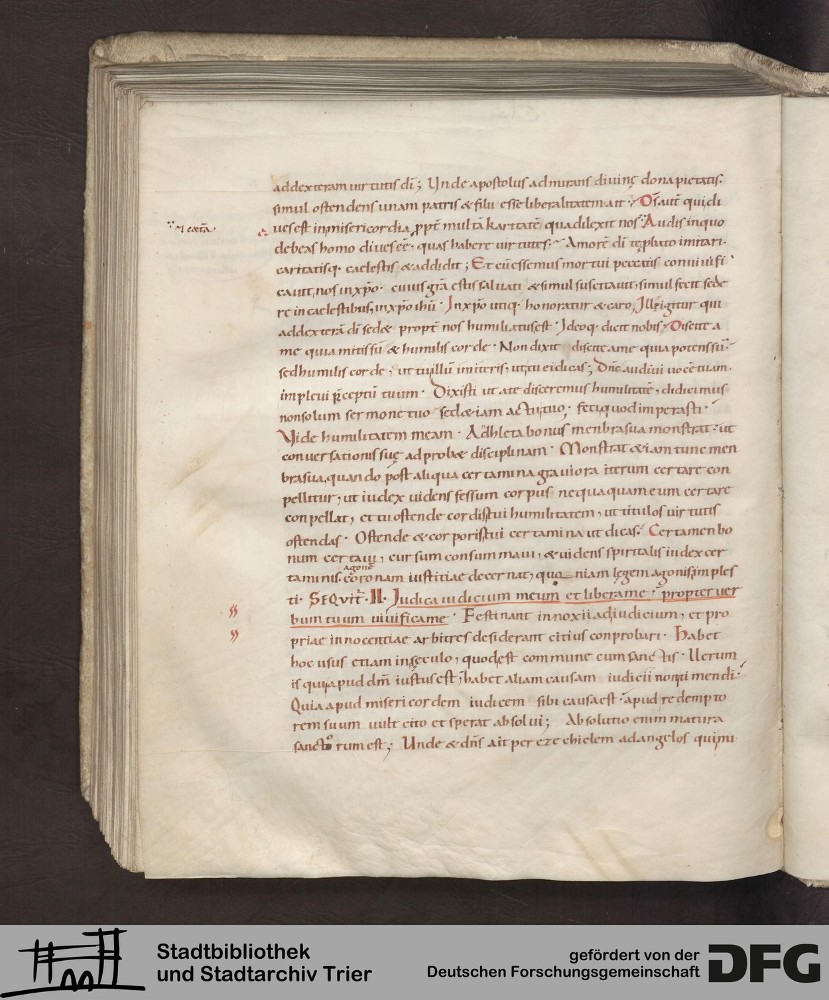 addexteram uirtutis dī; Unde apostolus admirans diuinę dona pietatis.
simul ostendens unam patris & filii esse liberalitatem ait. Ds̄ aut̄ qui di
ues est in misericordia ꝓpt̄ multā karitatē qua dilexit nos. Audis in quo
debeas homo diues ēē. quas habere uirtutes. Amorē dī templato imitari.
caritatisq. caelestis & addidit; Et cū essemus mortui peccatis conuiuifi
cauit, nos in xp̄o. cuius gr̄a estis saluati & simul suscitauit, simul fecit sede
re in caelestibus, in xp̄o ihū. In xp̄o utiq. honoratur & caro, Ille igitur qui
addexterā dī sed& propt̄ nos humiliatus est. Ideoq. dicit nobis, Discite a
me quia mitis sū & humilis corde. Non dixit discite a me quia potens sū.
sed humilis corde, ut tu illū imiteris, ut tu ei dicas; Dn̄e audiui uocē tuam.
impleui p̄ceptū tuum. Dixisti ut a te disceremus humilitatē, didicimus
non solum sermone tuo sed &iam actu tuo, feci quod imperasti.
Vide humilitatem meam. Adhleta bonus menbra sua monstrat. ut
conuersationis suę ad prob& disciplinam. Monstrat &iam tunc men
bra sua, quando post aliqua certamina grauiora iterum certare con
pellitur, ut iudex uidens fessum corpus nequaquam eum certare
conpellat, et tu ostende cordis tui humilitatem, ut titulos uirtutis
ostendas. Ostende & corporis tui certamina ut dicas. Certamen bo
num certaui, cursum consummaui, & uidens spiritalis iudex cer
taminis coronam iustitiae decernat, quoniam legem agonis imples
agonē
ti. SEQUIT̄. II. Iudica iudicium meum et libera me. propter uer
bum tuum uiuifica me. Festinant innoxii ad iudicium, et pro
priae innocentiae arbitros desiderant citius conprobari. Habet
hoc usus etiam in sęculo, quod est commune cum sanctis. Uerum
is qui apud dm̄ iustus est, habet aliam causam iudicii non timendi.
Quia apud misericordem iudicem sibi causa est. apud redempto
rem suum uult cito et sperat absolui; Absolutio enim matura
sanctorum est; Unde & dn̄s ait per ezechielem ad angelos qui mi
Stadtbibliothek
und Stadtarchiv Trier
gefördert von der
Deutschen Forschungsgemeinschaft
DFG